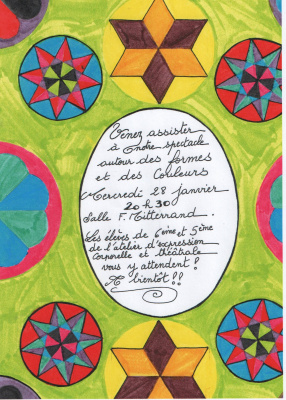 Venez assister
à notre spectacle
autour des formes
et des couleurs
Mercredi 28 janvier
20 h 30
Salle F. Mitterrand.
Les élèves de 6ème et 5ème
de l'atelier d'expression
corporelle et théâtrale
vous y attendent !
A bientôt !!